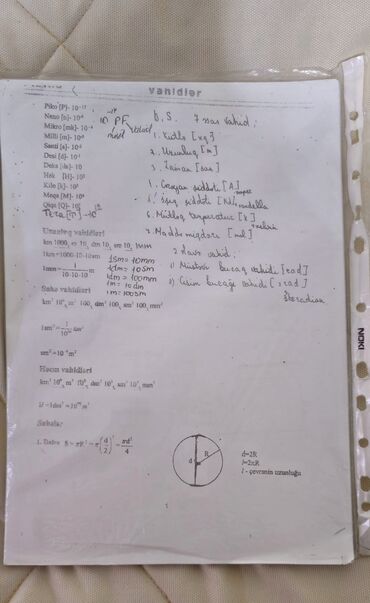 vahidlər
Piko (P)- 10⁻¹²
Nano [n]- 10⁻⁹
Mikro [mk]- 10⁻⁶
Milli [m]- 10⁻³
Santi [s]- 10⁻²
Desi [d]- 10⁻¹
Deka [da]- 10
Hek [h]- 10²
Kilo [k]- 10³
Meqa [M]- 10⁶
Qiqa [Q]- 10⁹
Tera [T] - 10¹²
B.S. 7 əsas vahid:
1. Kütlə [kq]
2. Uzunluq [m]
3. Zaman [san]
4. Cərəyan şiddəti [A] amper
5. İşıq şiddəti [kd] kandella
6. Mütləq temperatur [K] kelvin
7. Maddə miqdarı [mol]
2 əlavə vahid:
1) Müstəvi bucaq vahidi [rad]
2) Cisim bucağı vahidi [srad]
steradian
Uzunluq vahidləri
km 1000 m 10 dm 10 sm 10 mm
1km=1000·10·10sm
1mm = 1/10·10·10 m
1sm = 10mm
1dm = 10sm
1dm = 100mm
1m = 10dm
1m = 100sm
Sahə vahidləri
km² 10⁶ m² 100 dm² 100 sm² 100 mm²
sm² =10⁻⁴ m²
Həcm vahidləri
km³ 10⁹ m³ 10³ dm³ 10³ sm³ 10³ mm³
1l =1dm³ =10⁻³ m³
1. Dairə S = πR² = π(d/2)² = πd²/4
d R
d=2R
l=2πR
l - çevrənin uzunluğu
NOKI